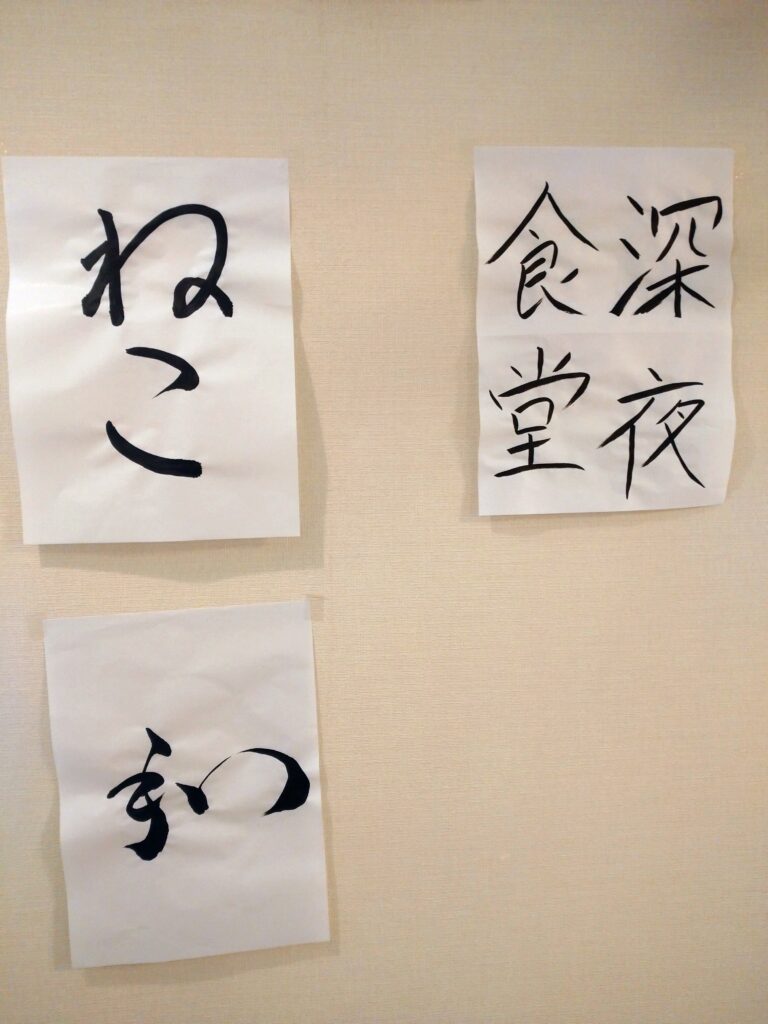 深夜
食堂
ねこ
和